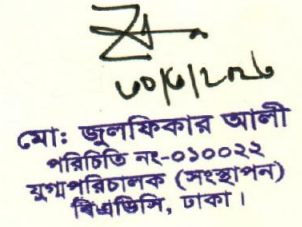 মোঃ জুলফিকার আলী
পরিচিতি নং-০১০০২২
যুগ্মপরিচালক (সংস্থাপন)
বিএডিসি, ঢাকা।